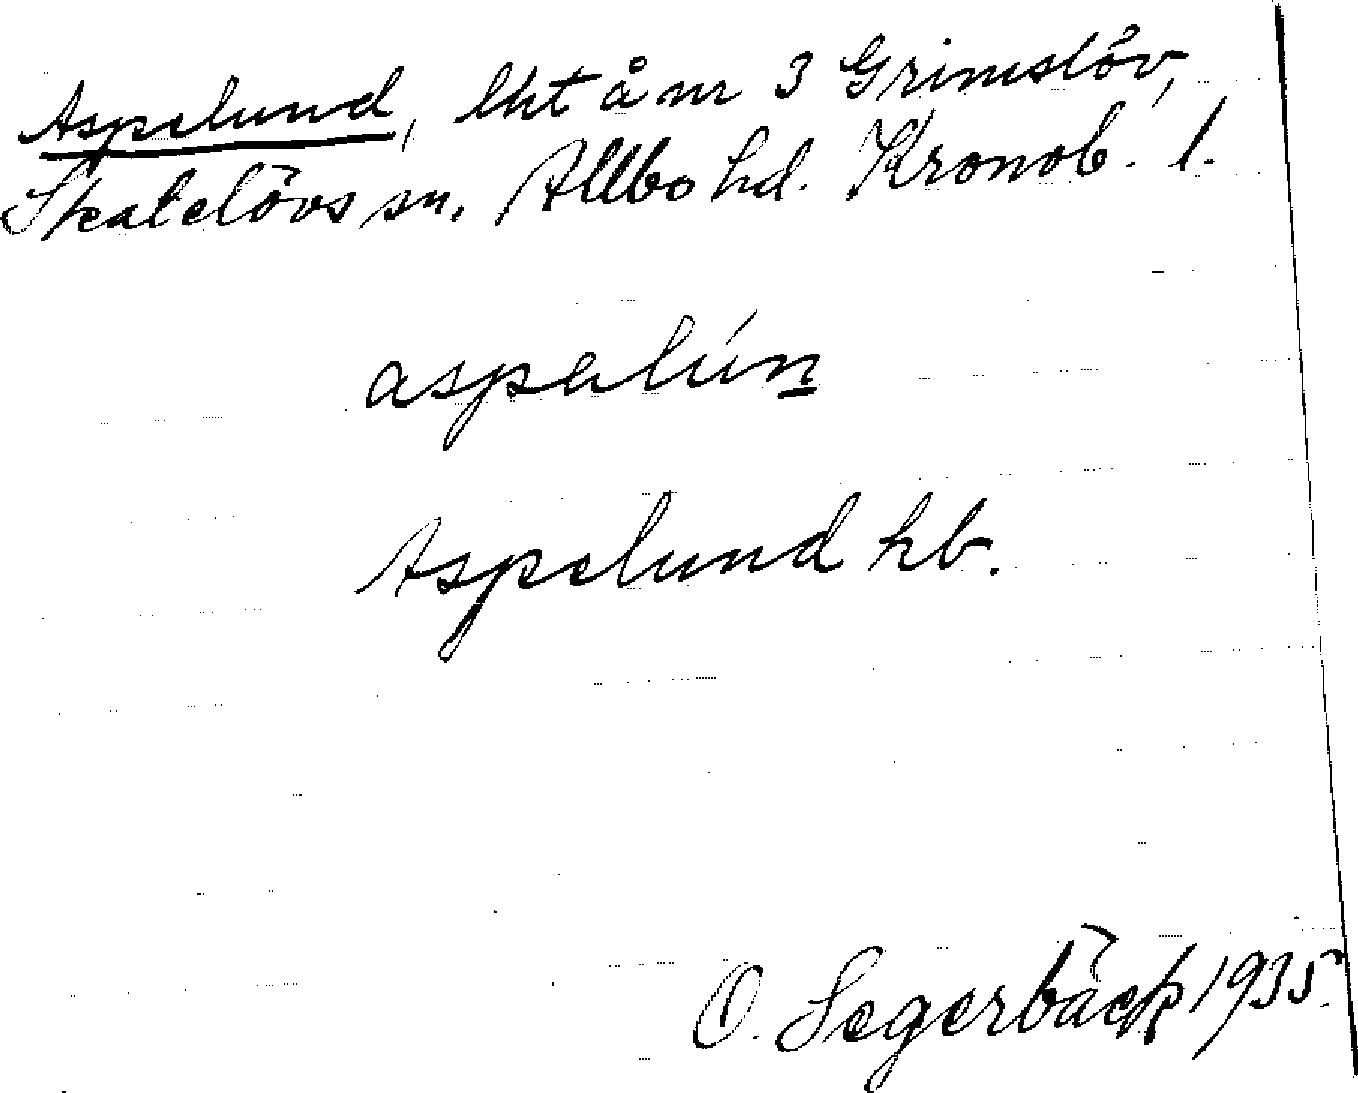 Aspelund, lht å nr 3 Grimslöv,
Skatelövs sn. Allbo hd. Kronob. l.
aspəlún
Aspelund hb.
O. Segerbäck 1935.